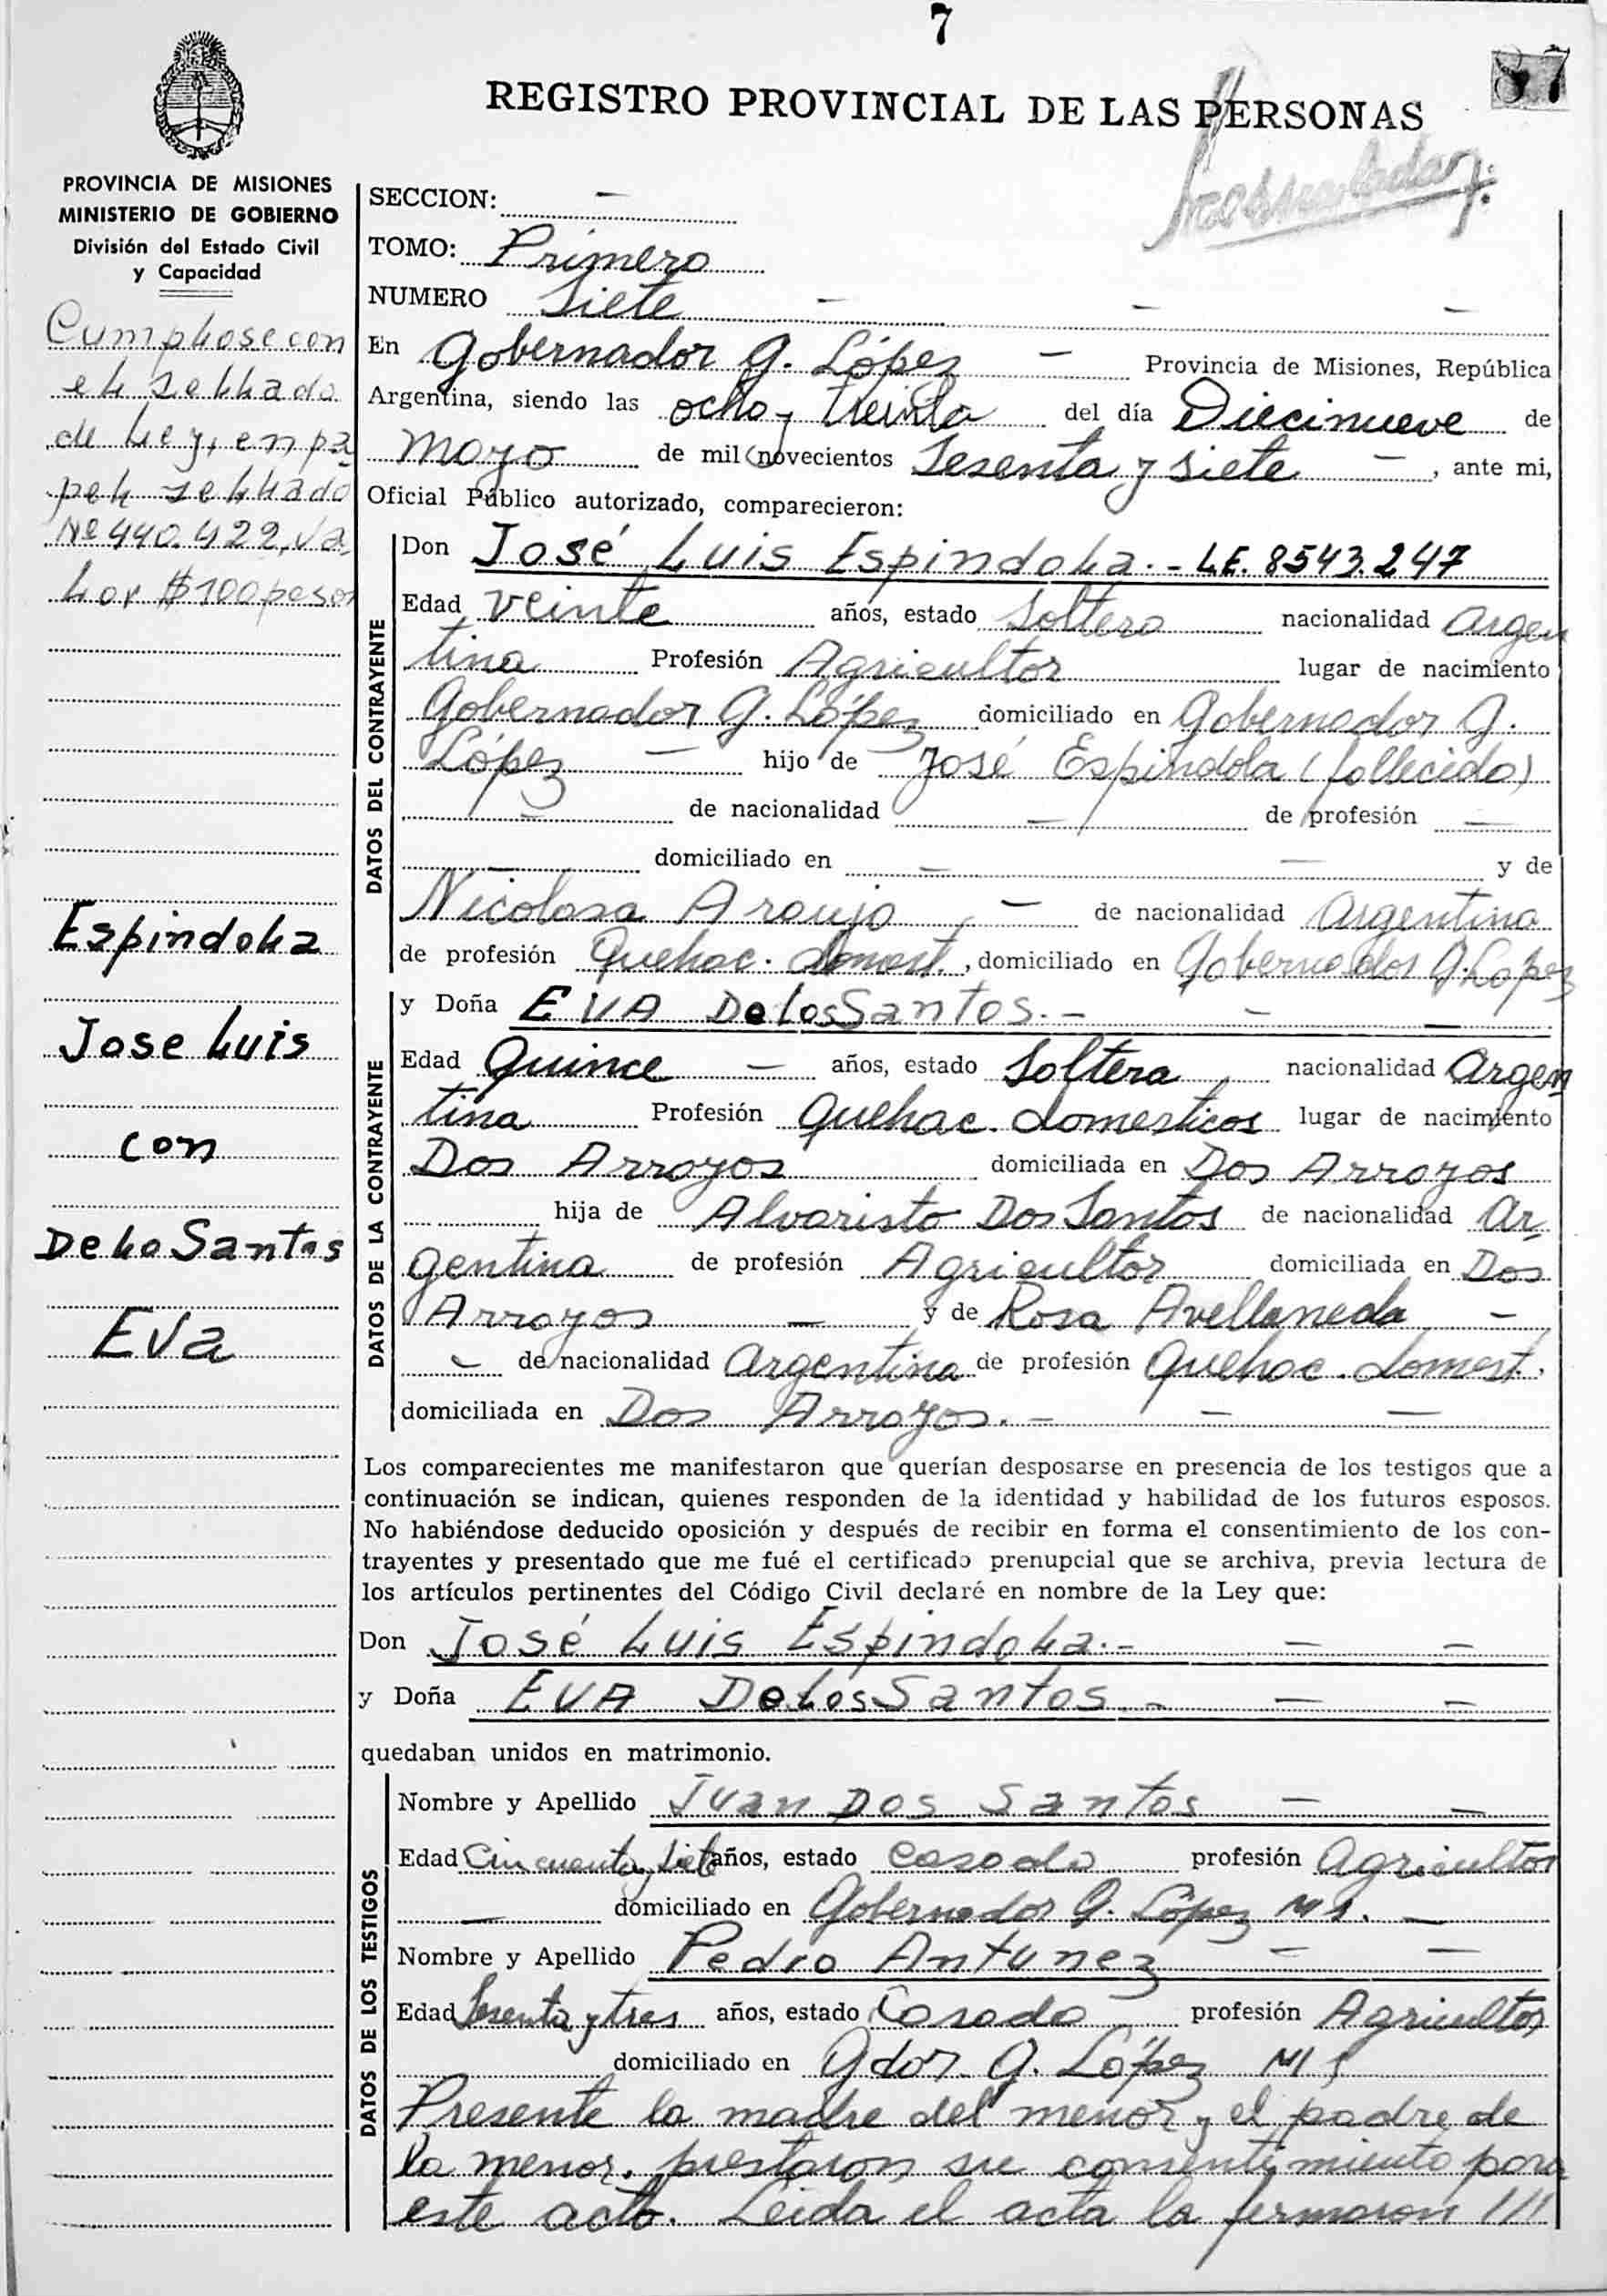 7
87
REGISTRO PROVINCIAL DE LAS PERSONAS
PROVINCIA DE MISIONES
MINISTERIO DE GOBIERNO
División del Estado Civil
y Capacidad
Cumplose con
el sellado
de Ley, en pa
pel sellado
Nº 440.422, va
lor $ 100 pesos
Espindola
Jose Luis
con
De Lo Santos
Eva
SECCION: -
TOMO: Primero
NUMERO Siete - - -
En Gobernador G. López - Provincia de Misiones, República
Argentina, siendo las ocho y treinta del día Diecinueve de
mayo de mil novecientos Sesenta y siete -, ante mi,
Oficial Público autorizado, comparecieron:
DATOS DEL CONTRAYENTE
Don José Luis Espindola.- L.E. 8543.247
Edad veinte años, estado Soltero nacionalidad Argen
tina Profesión Agricultor lugar de nacimiento
Gobernador G. López domiciliado en Gobernador G.
López - hijo de José Espindola (fallecido)
- de nacionalidad - de profesión -
- domiciliado en - - y de
Nicolasa Araujo, - de nacionalidad Argentina
de profesión Quehac. domest., domiciliado en Gobernador G. López
DATOS DE LA CONTRAYENTE
y Doña EVA De Los Santos.- - -
Edad Quince - años, estado Soltera nacionalidad Argen
tina Profesión Quehac. domesticos lugar de nacimiento
Dos Arroyos domiciliada en Dos Arroyos
hija de Alvaristo Dos Santos de nacionalidad Ar
gentina de profesión Agricultor domiciliada en Dos
Arroyos - y de Rosa Avellaneda -
- de nacionalidad Argentina de profesión Quehac. domest.
domiciliada en Dos Arroyos.- - -
Los comparecientes me manifestaron que querían desposarse en presencia de los testigos que a
continuación se indican, quienes responden de la identidad y habilidad de los futuros esposos.
No habiéndose deducido oposición y después de recibir en forma el consentimiento de los con-
trayentes y presentado que me fué el certificado prenupcial que se archiva, previa lectura de
los artículos pertinentes del Código Civil declaré en nombre de la Ley que:
Don José Luis Espindola.- - -
y Doña EVA De Los Santos.- - -
quedaban unidos en matrimonio.
DATOS DE LOS TESTIGOS
Nombre y Apellido Juan Dos Santos - -
Edad Cincuenta y siete años, estado Casado profesión Agricultor
- domiciliado en Gobernador G. López Ms. -
Nombre y Apellido Pedro Antunez - -
Edad Sesenta y tres años, estado Casado profesión Agricultor
domiciliado en Gdor. G. López Ms
Presente la madre del menor y el padre de
la menor, prestaron su consentimiento para
este acto. Leida el acta la firmaron ///